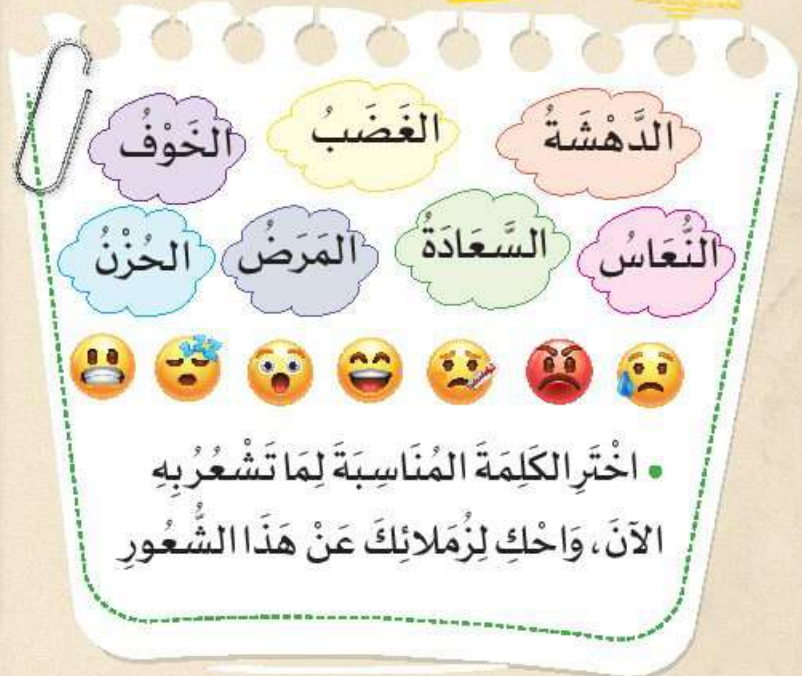 الدَّهْشَةُ الغَضَبُ الخَوْفُ
النُّعَاسُ السَّعَادَةُ المَرَضُ الحُزْنُ
• اخْتَرِ الكَلِمَةَ المُنَاسِبَةَ لِمَا تَشْعُرُ بِهِ
الآنَ، وَاحْكِ لِزُمَلائِكَ عَنْ هَذَا الشُّعُورِ